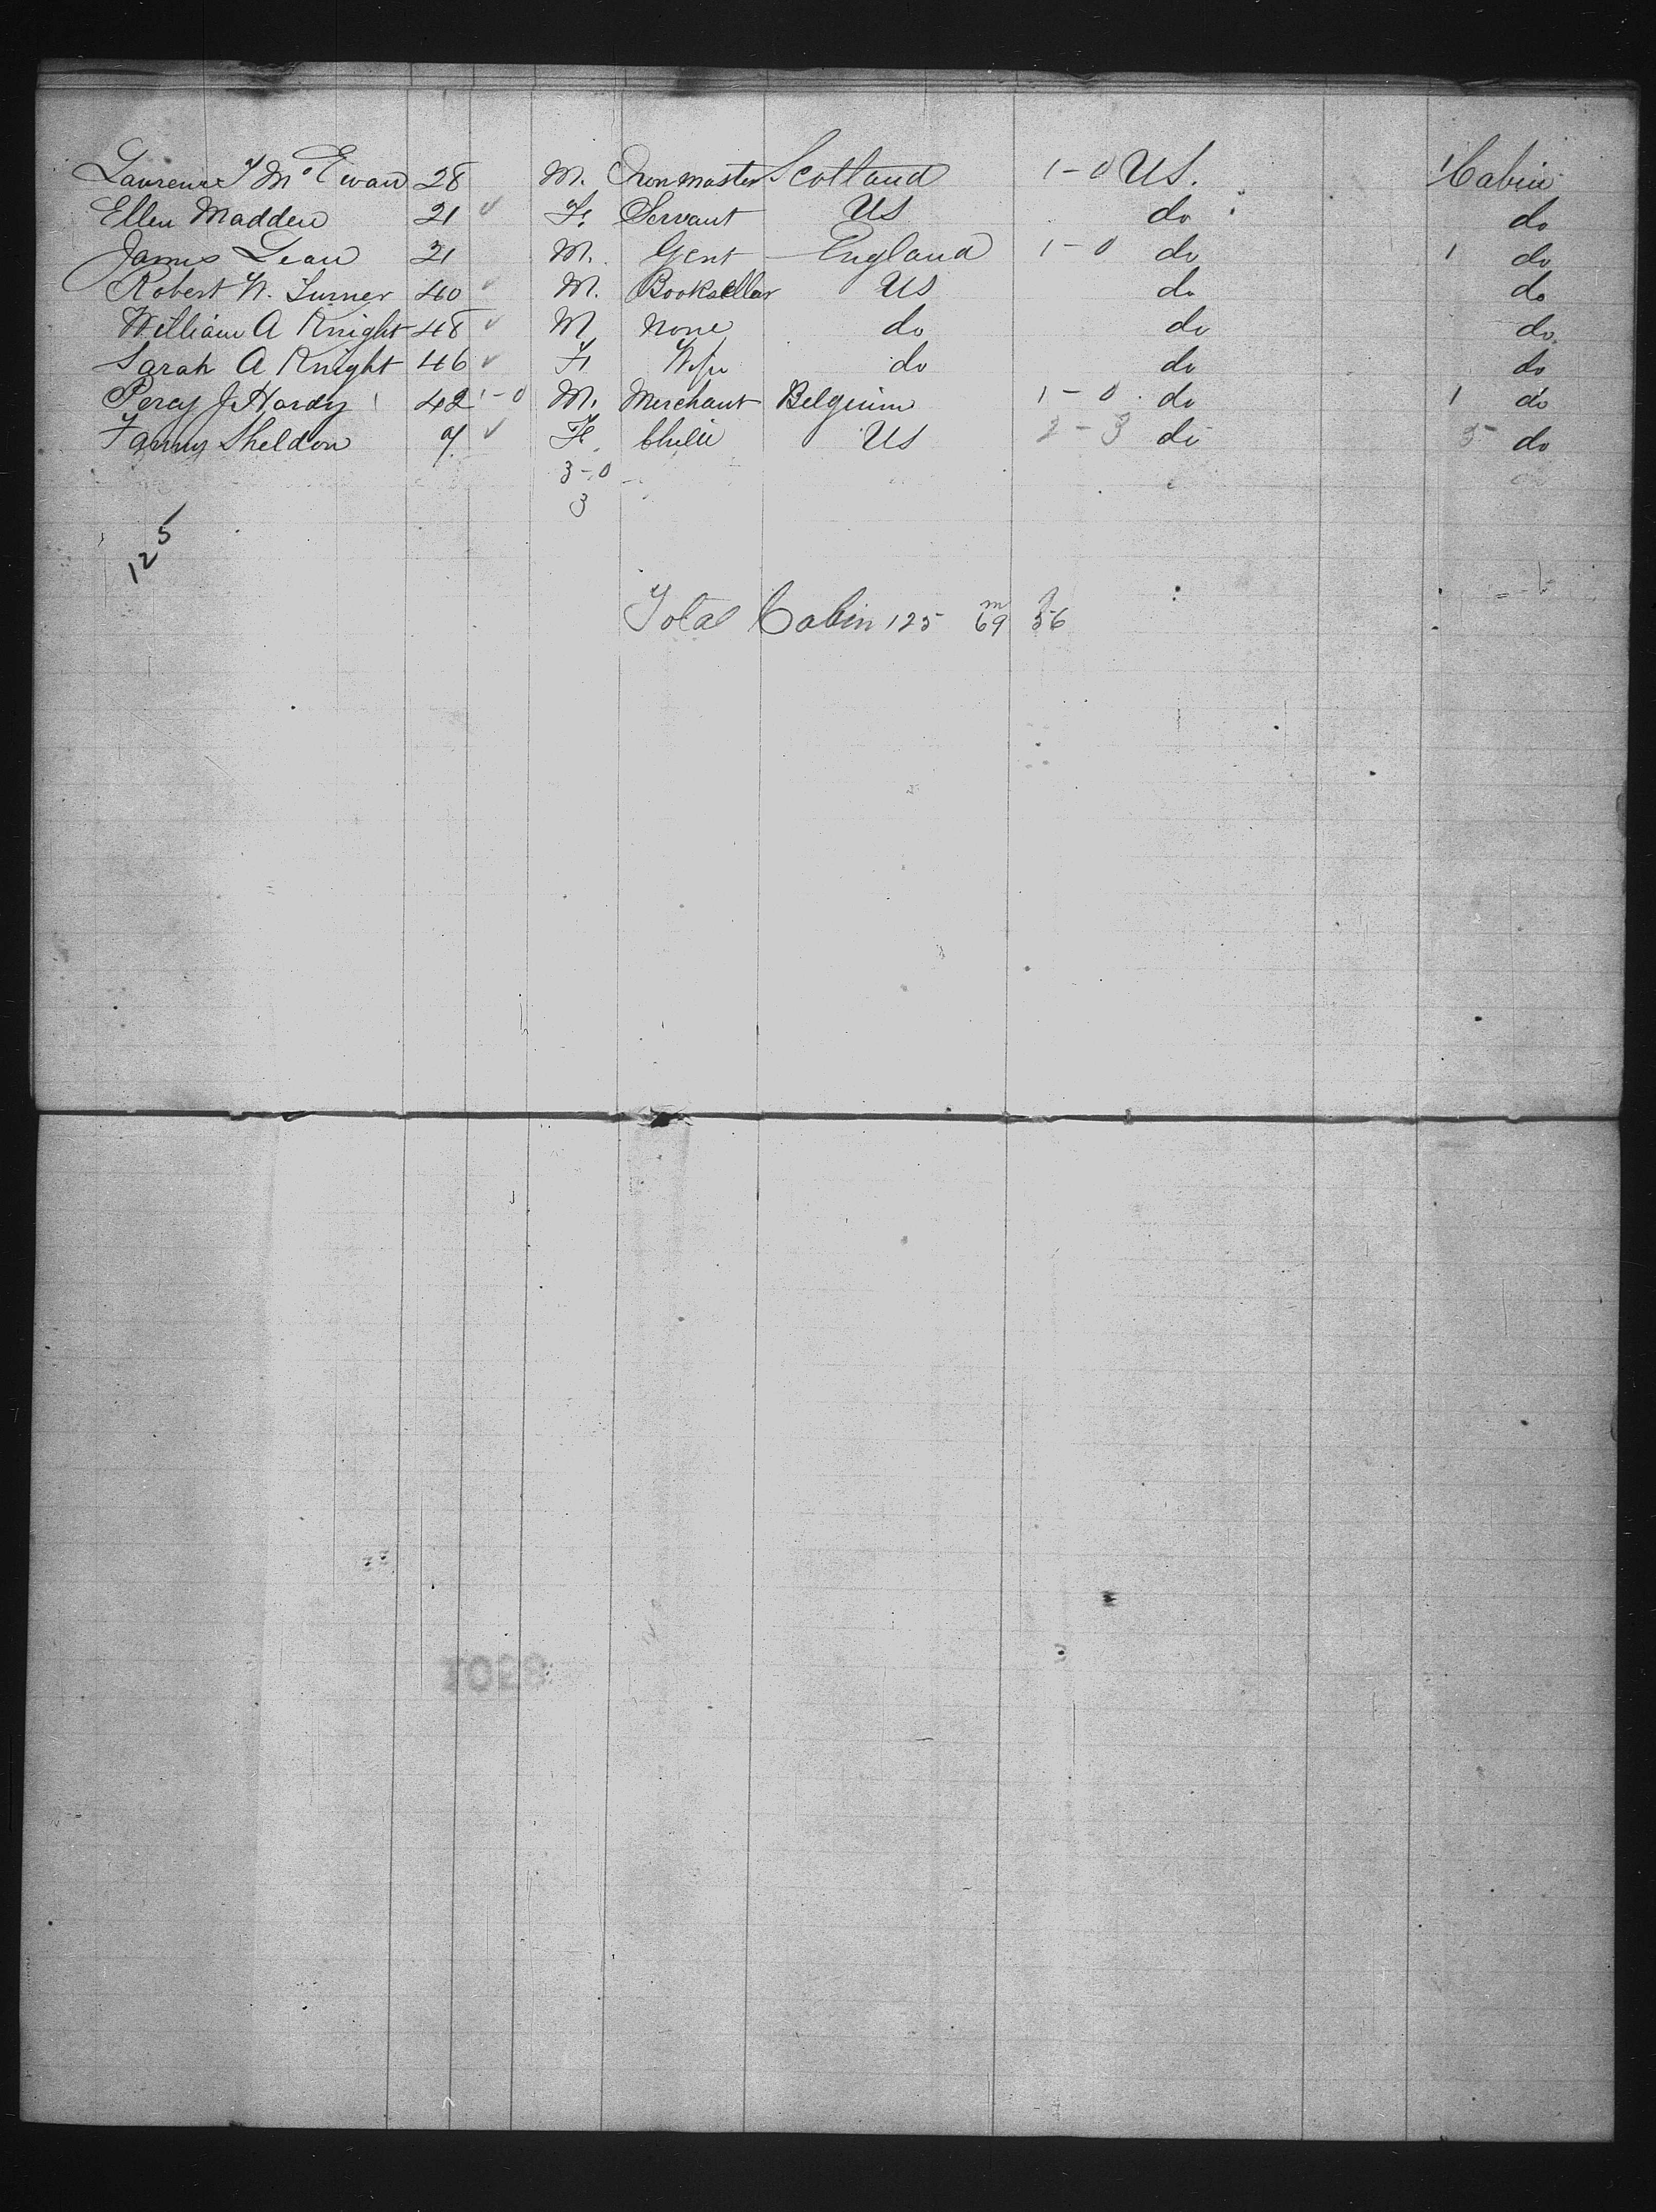 Laurence T McEwan 28 M. Ironmaster Scotland 1-0 US. 1 Cabin
Ellen Madden 21 ✓ F. Servant US do do
James Dean 21 M. Gent England 1-0 do 1 do
Robert W. Turner 40 ✓ M. Bookseller US do do
William A Knight 48 ✓ M none do do do
Sarah A Knight 46 ✓ F. Wife do do do
Percy J Hardy 42 1-0 M. Merchant Belgium 1-0 do 1 do
Fanny Sheldon 7 ✓ F. Child US 2-3 do 5 do
3-0
3
125
Total Cabin 125 m 69 f 56